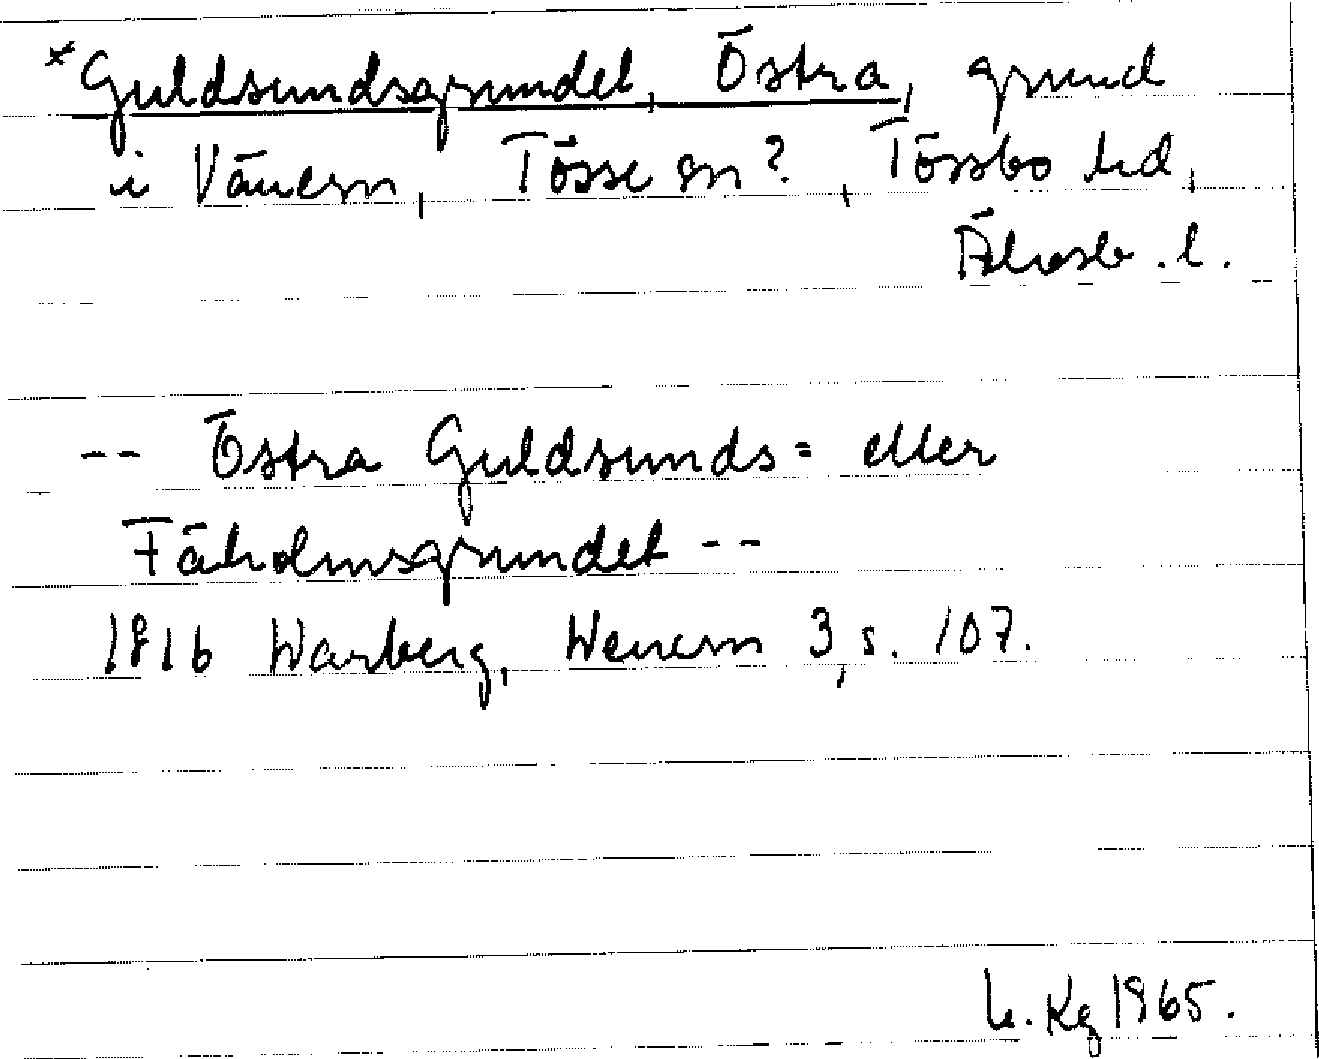 *Guldsundsgrundet, Östra, grund
i Vänern, Tösse sn?, Tössbo hd,
Älvsb. l.
-- Östra Guldsunds= eller
Fäholmsgrundet --
1816 Warberg, Wenern 3, s. 107.
Kg 1965.